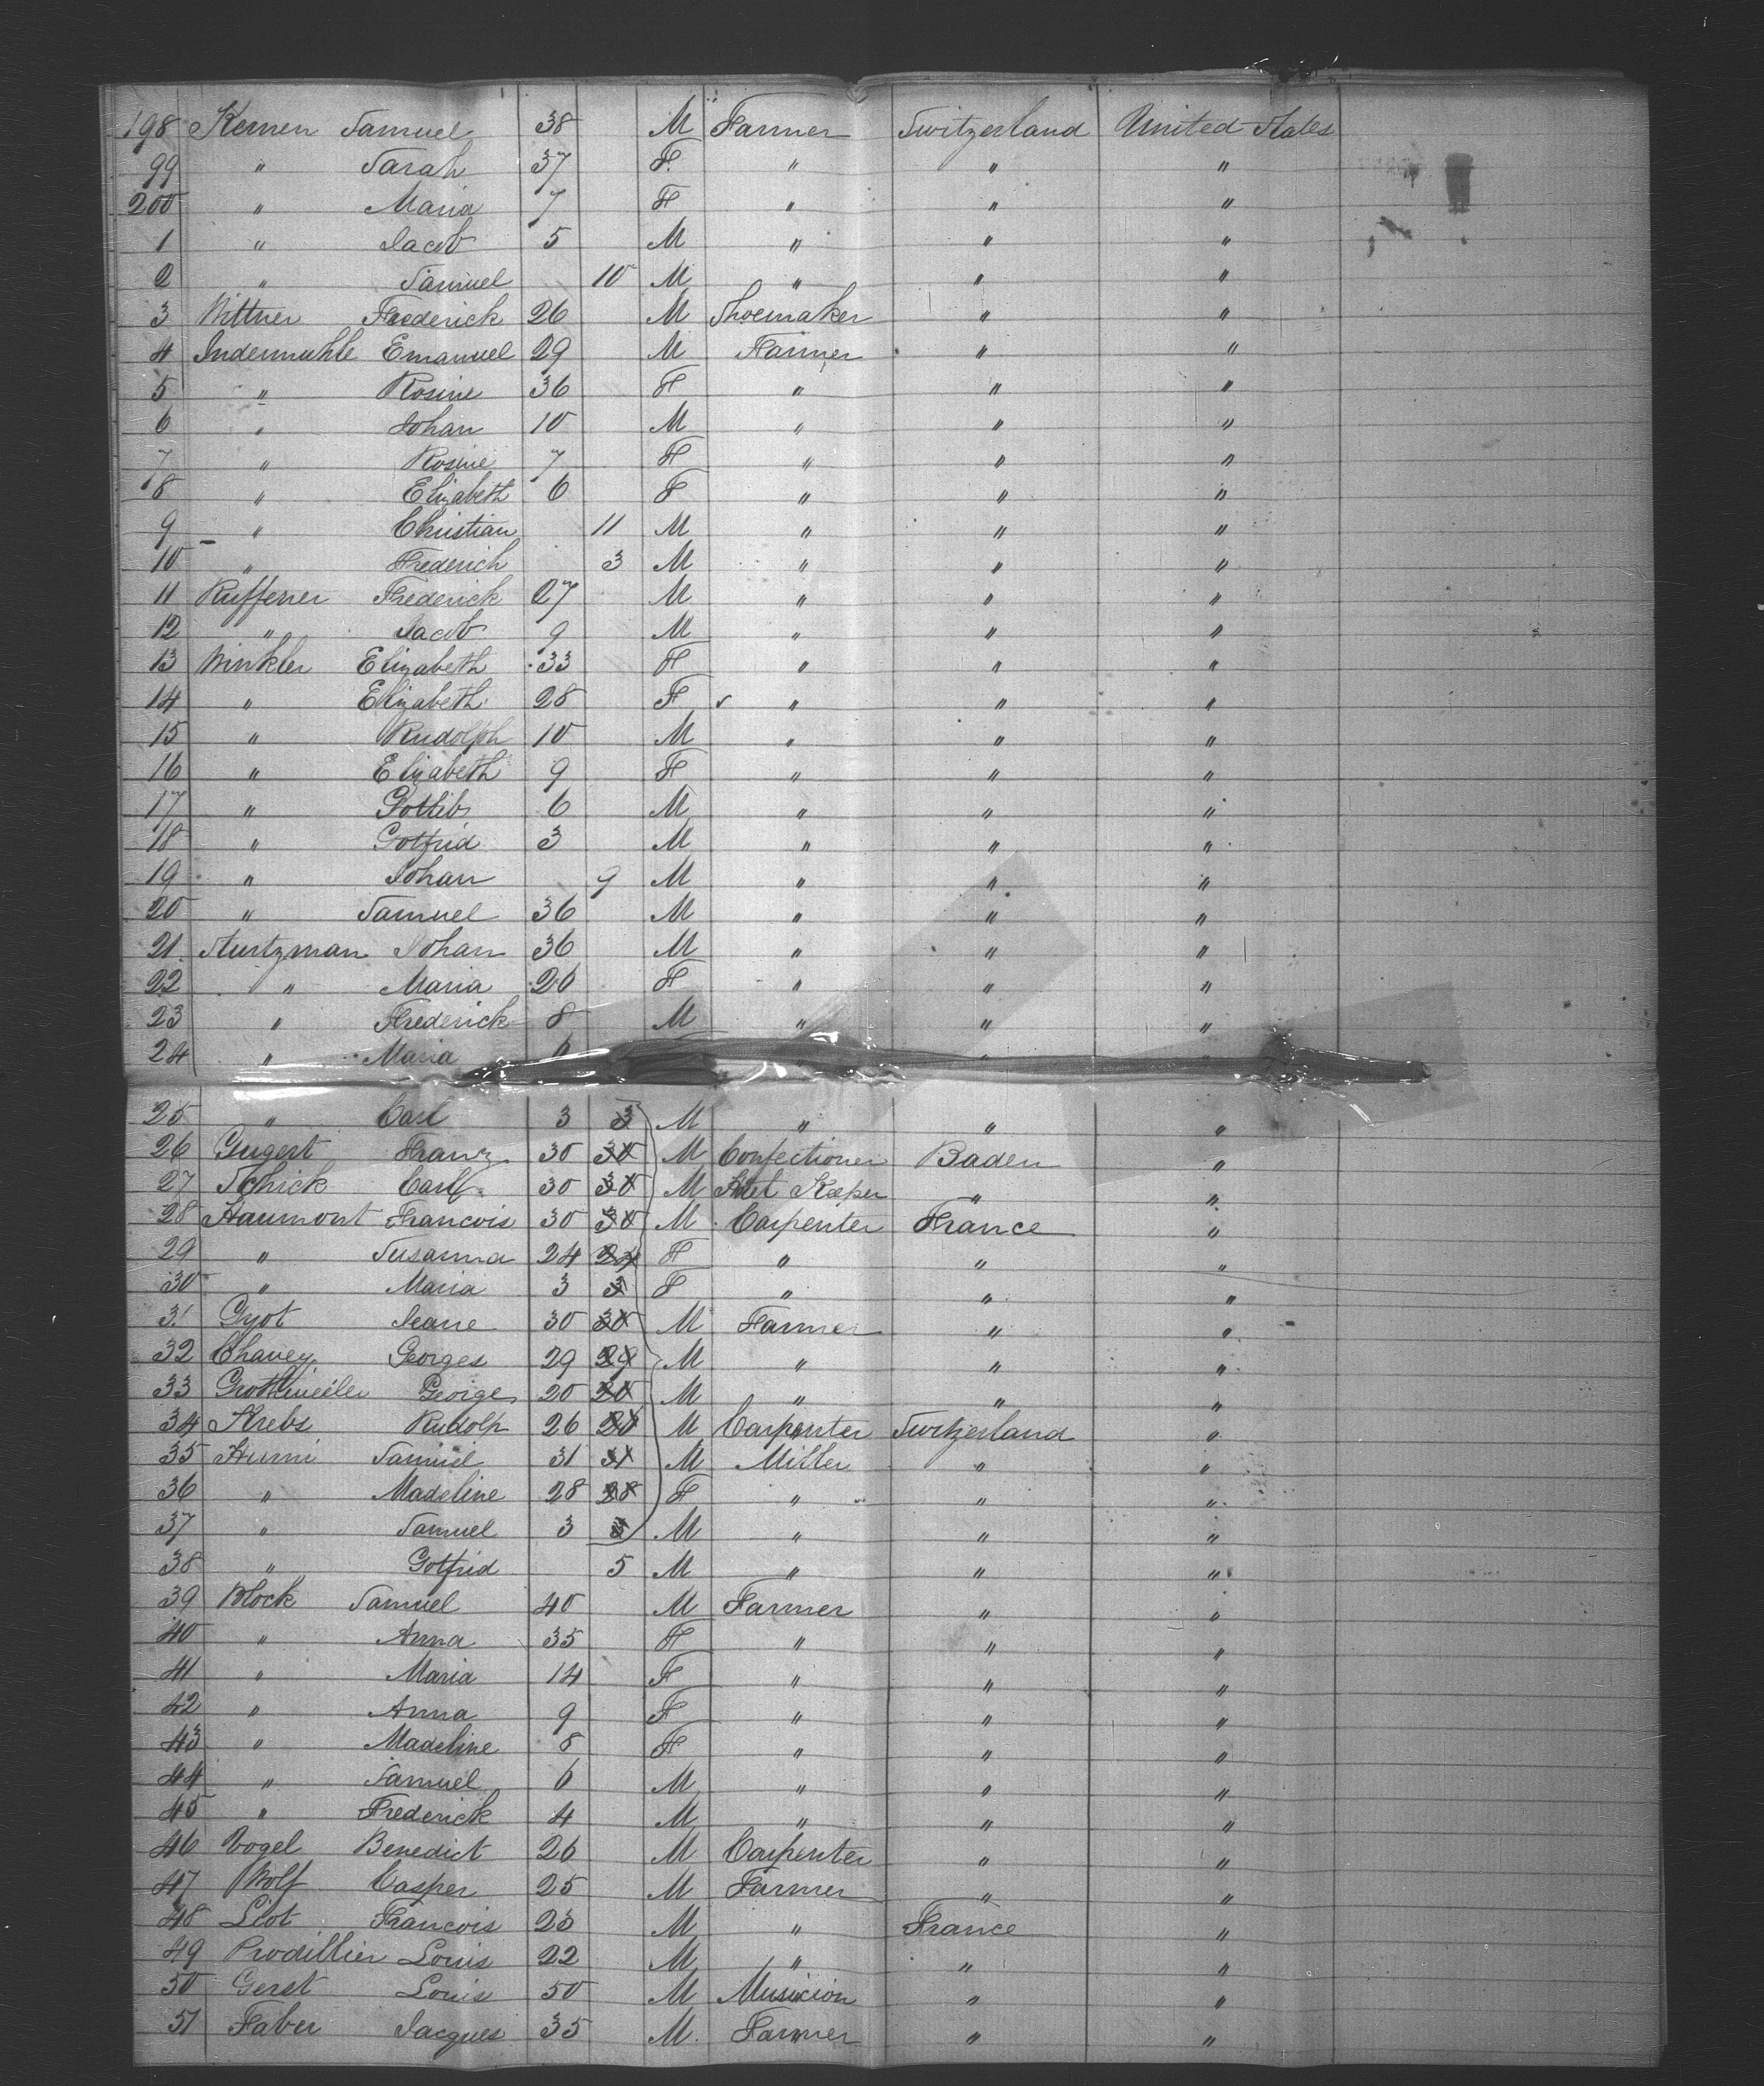 198 Kernen Samuel 38 M Farmer Switzerland United States
99 " Sarah 37 F. " " "
200 " Maria 7 F " " "
1 " Jacob 5 M " " "
2 " Samuel 10 M " " "
3 Wittner Frederick 26 M Shoemaker " "
4 Indermuhle Emanuel 29 M Farmer " "
5 " Rosine 36 F " " "
6 " Johan 10 M " " "
7 " Rosine 7 F " " "
8 " Elizabeth 6 F " " "
9 " Christian 11 M " " "
10 " Frederich 3 M " " "
11 Ruffener Frederick 27 M " " "
12 " Jacob 9 M " " "
13 Winkler Elizabeth 33 F " " "
14 " Elizabeth 28 F " " "
15 " Rudolph 10 M " " "
16 " Elizabeth 9 F " " "
17 " Gotlib 6 M " " "
18 " Gotfrid 3 M " " "
19 " Johan 9 M " " "
20 " Samuel 36 M " " "
21 Sturtzman Johan 36 M " " "
22 " Maria 26 F " " "
23 " Frederick 8 M " " "
24 " Maria 6 " "
25 " Carl 3 3 M " " "
26 Gugert Franz 30 30 M Confectioner Baden "
27 Schick Carl 30 30 M Hotel Keeper " "
28 Haumont Francois 30 30 M Carpenter France "
29 " Susanna 24 24 F " " "
30 " Maria 3 3 F " " "
31 Gyot Jeane 30 30 M Farmer " "
32 Chavey Georges 29 29 M " " "
33 George 20 20 M " " "
34 Krebs Rudolp 26 26 M Carpenter Switzerland "
35 Hurni Samuel 31 31 M Miller " "
36 " Madeline 28 28 F " " "
37 " Samuel 3 3 M " " "
38 " Gotfrid 5 M " " "
39 Block Samuel 40 M Farmer " "
40 " Anna 35 F " " "
41 " Maria 14 F " " "
42 " Anna 9 F " " "
43 " Madeline 8 F " " "
44 " Samuel 6 M " " "
45 " Frederick 4 M " " "
46 Vogel Benedict 26 M Carpenter " "
47 Wolf Casper 25 M Farmer " "
48 Liot Francois 23 M " France "
49 Prodillier Louis 22 M " " "
50 Gerst Louis 50 M Musicion " "
51 Faber Jacques 35 M. Farmer " "